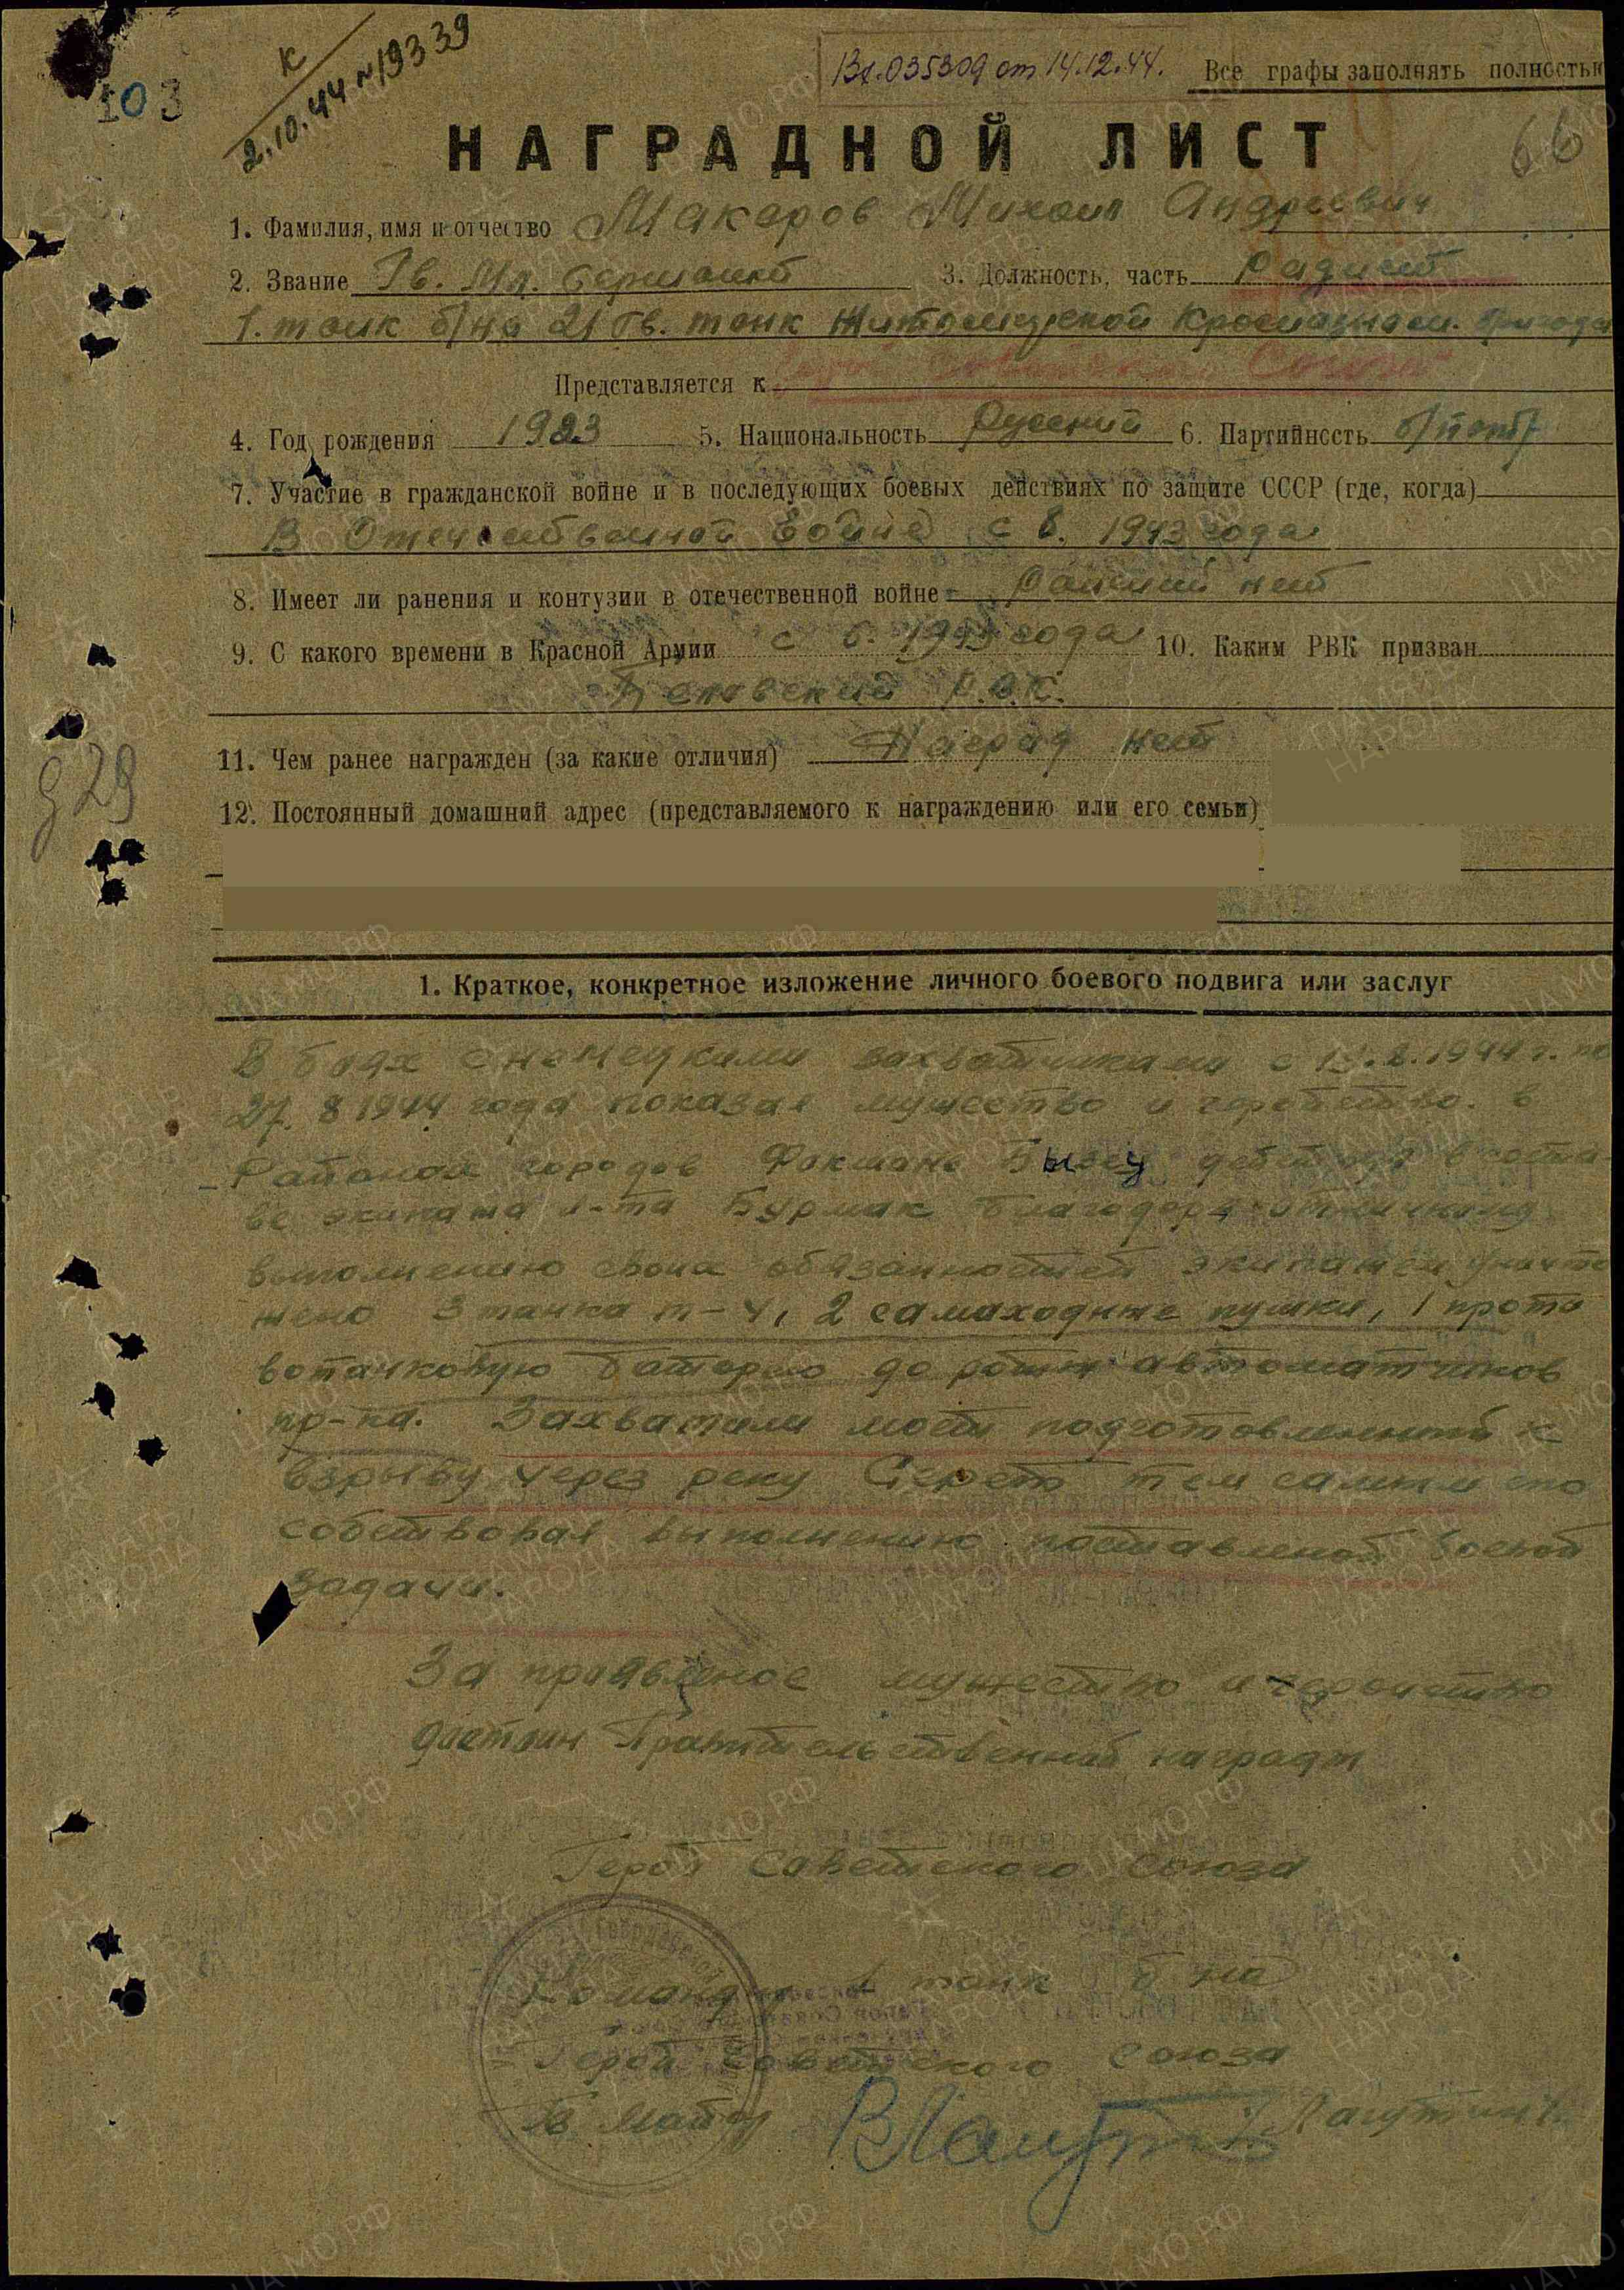 103
К
2.10.44 №19339
Вх.035309 от 14.12.44.
Все графы заполнять полностью
66
НАГРАДНОЙ ЛИСТ
1. Фамилия, имя и отчество Макаров Михаил Андреевич
2. Звание Гв. Мл. Сержант 3. Должность, часть Радист
1. танк б/на 21 Гв. танк Житомирской Краснознам. бригады
Представляется к Герою Советского Союза
4. Год рождения 1923 5. Национальность Русский 6. Партийность б/парт
7. Участие в гражданской войне и в последующих боевых действиях по защите СССР (где, когда)
В Отечественной Войне с 8. 1943 года
8. Имеет ли ранения и контузии в отечественной войне Ранений нет
9. С какого времени в Красной Армии с 6. 1943 года 10. Каким РВК призван
Р.В.К.
929
11. Чем ранее награжден (за какие отличия) Наград нет
12. Постоянный домашний адрес (представляемого к награждению или его семьи)
1. Краткое, конкретное изложение личного боевого подвига или заслуг
В боях с немецкими захватчиками с 8.1944 г. по
27. 8 1944 года показал мужество и геройство. в
Районах городов Фокшаны Бызеу действуя в соста-
ве экипажа л-та Бурмак благодаря отличному
выполнению своих обязанностей экипажем уничто
жено 3 танка т-4, 2 самаходные пушки, 1 прота
вотанковую батарею до роты автоматчиков
пр-ка. Захватили мост подготовленный к
взрыву через реку Серет тем самым спо
собствовал выполнению поставленой боевой
задачи.
За проявленое мужество и геройство
достоин Правительственной награды
Герой Советского Союза
Командир 1 танк б на
Герой Советского Союза
Гв Майор ВЛагутин Лагутин